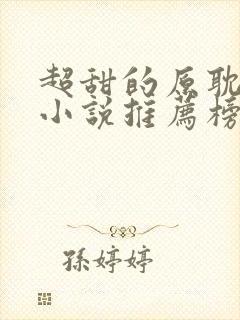 超甜的原耽
小說推薦榜
孫婷婷